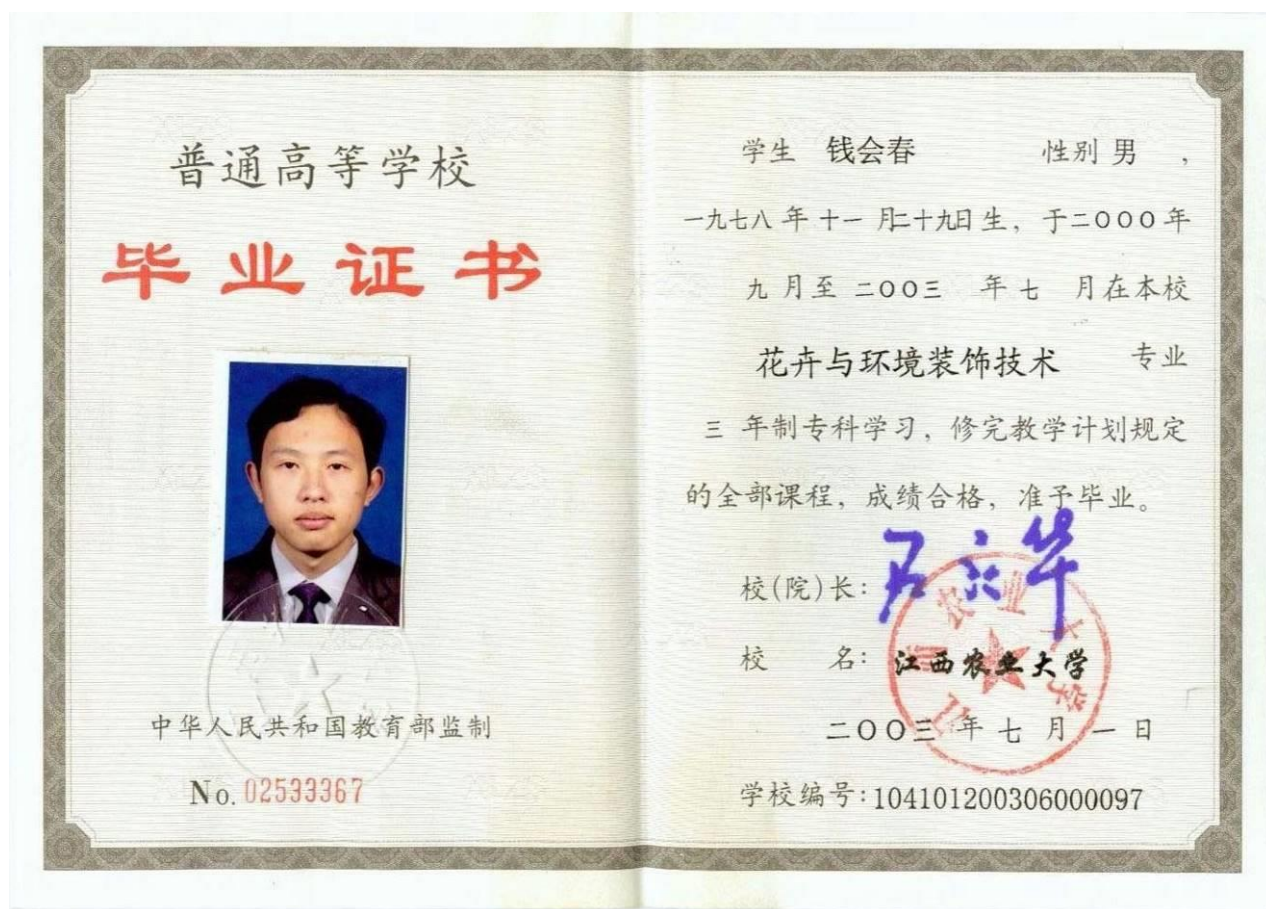 普通高等学校
毕业证书
中华人民共和国教育部监制
No. 02533367
学生 钱会春 性别 男 ,
一九七八 年 十一 月二十九日 生, 于二〇〇〇年
九 月至 二〇〇三 年 七 月在本校
花卉与环境装饰技术 专业
三 年制专科学习, 修完教学计划规定
的全部课程, 成绩合格, 准予毕业。
校(院)长:
校 名: 江西农业大学
二〇〇三 年 七 月 一 日
学校编号:104101200306000097